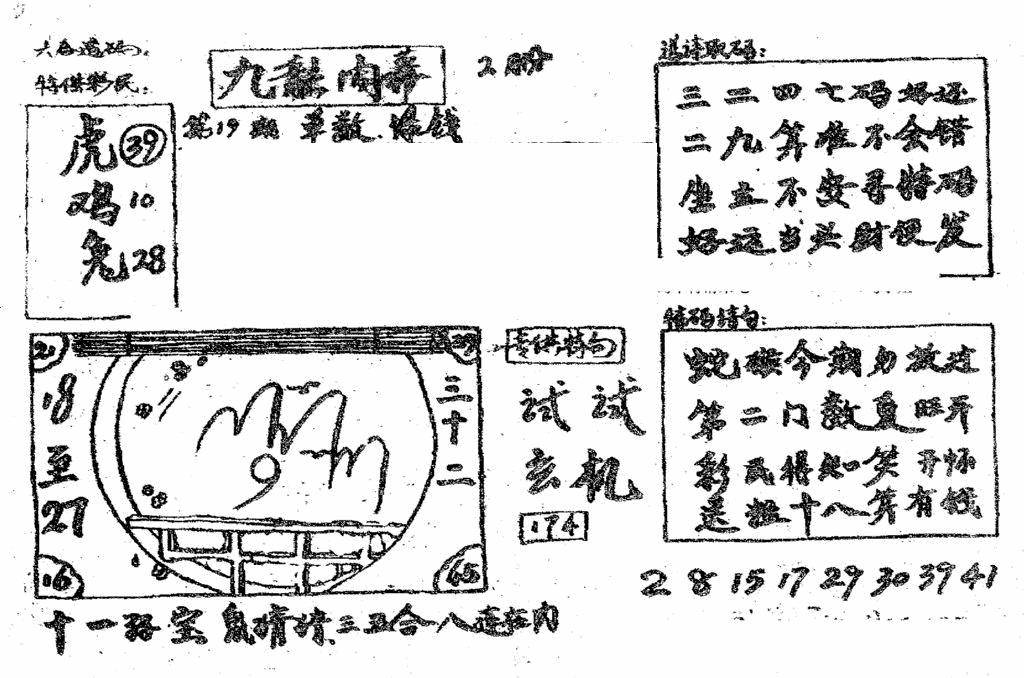 六合透码:
特供彩民:
虎 39
鸡 10
兔 28
九龍内幕 2份
第19期 单数 赚钱
送诗取码:
三二四七码好还
二九算准不会错
坐立不安寻特码
好运当头财便发
21
18
至
27
16
9
三十二
45
专供特句
试试
玄机
174
特码诗句:
蛇猴今期力放过
第二门数更旺开
彩民得知笑开怀
十八算有钱
2 8 15 17 29 30 39 41
十一 宝 三五合八连在内